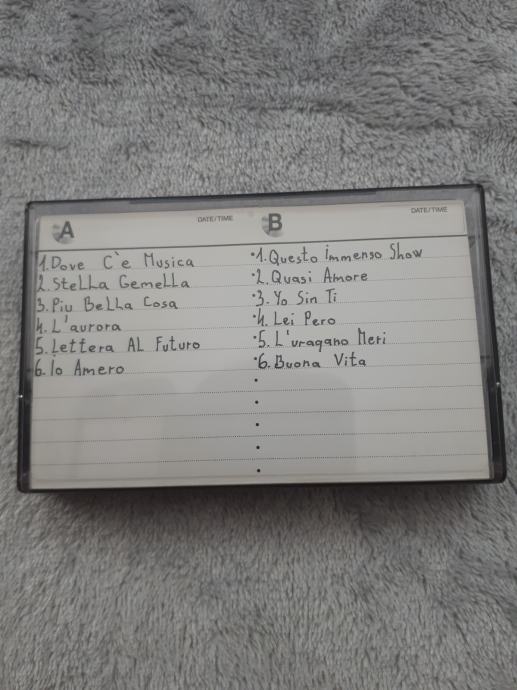 A DATE/TIME
1. Dove C'e Musica
2. Stella Gemella
3. Piu Bella Cosa
4. L'aurora
5. Lettera AL Futuro
6. Io Amero
B DATE/TIME
1. Questo Immenso Show
2. Quasi Amore
3. Yo Sin Ti
4. Lei Pero
5. L'uragano Meri
6. Buona Vita